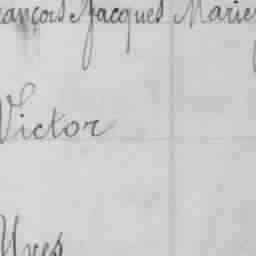 rançois Jacques Marie
Victor
Yves